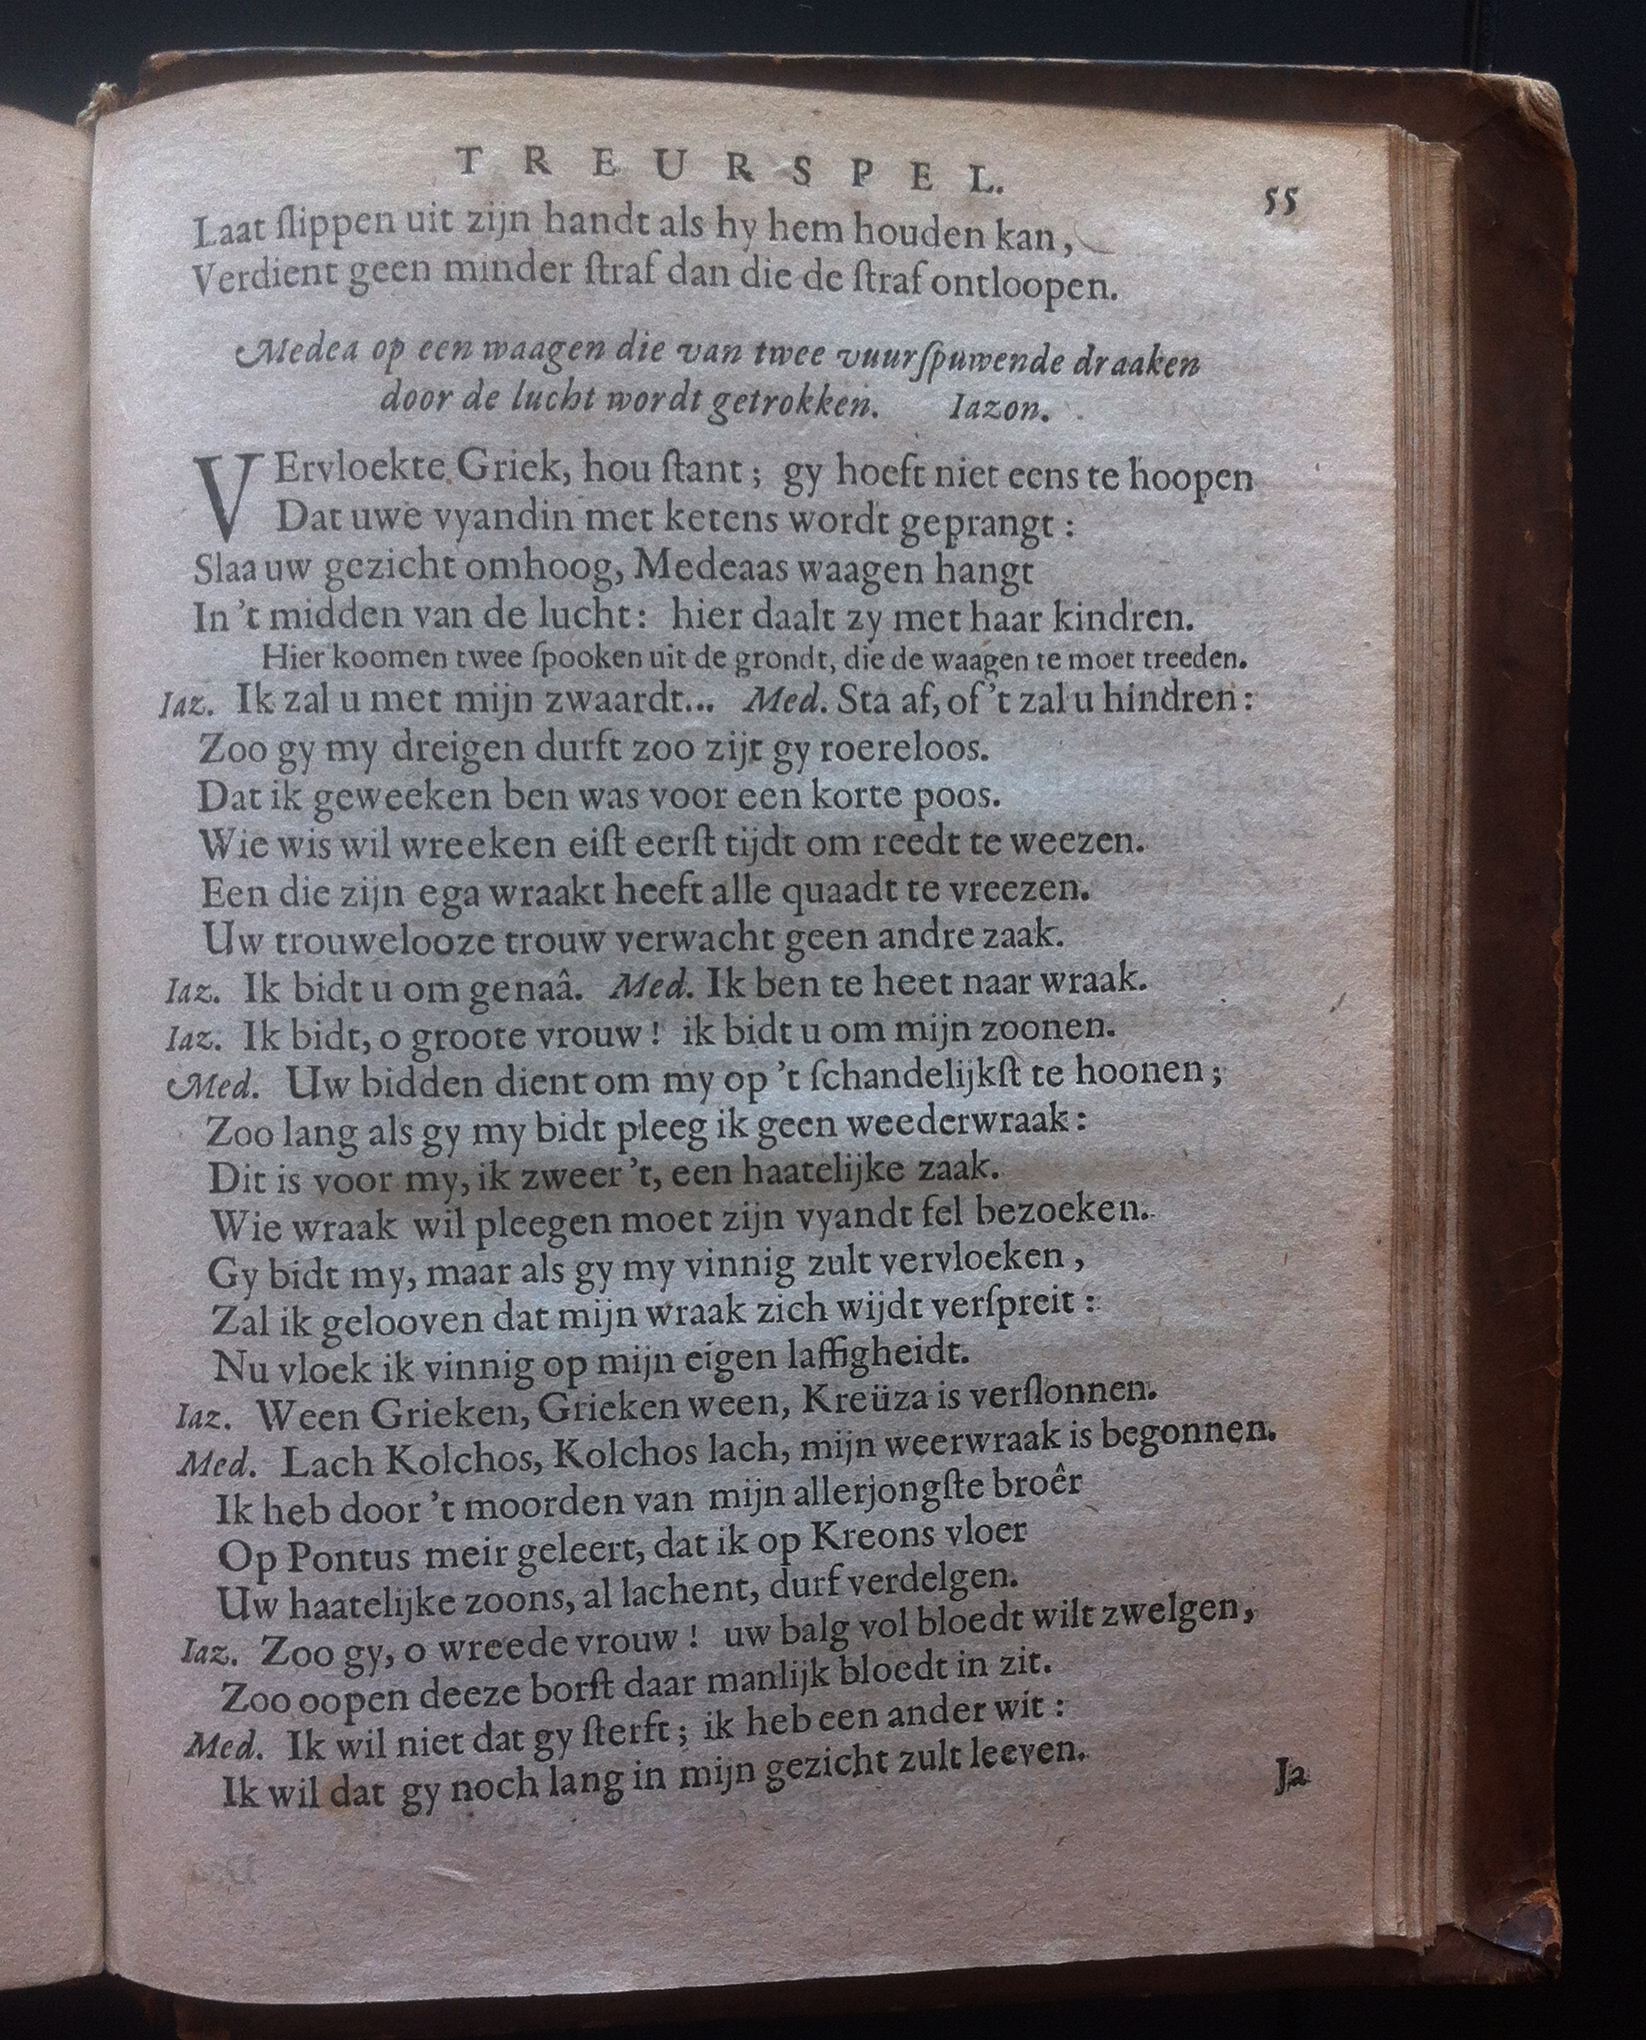 TREURSPEL.
55
Laat ſlippen uit zijn handt als hy hem houden kan,
Verdient geen minder ſtraf dan die de ſtraf ontloopen.
Medea op een waagen die van twee vuurſpuwende draaken
door de lucht wordt getrokken. Iazon.
VErvloekte Griek, hou ſtant; gy hoeft niet eens te hoopen
Dat uwe vyandin met ketens wordt geprangt:
Slaa uw gezicht omhoog, Medeaas waagen hangt
In 't midden van de lucht: hier daalt zy met haar kindren.
Hier koomen twee ſpooken uit de grondt, die de waagen te moet treeden.
Iaz. Ik zal u met mijn zwaardt... Med. Sta af, of 't zal u hindren:
Zoo gy my dreigen durft zoo zijt gy roereloos.
Dat ik geweeken ben was voor een korte poos.
Wie wis wil wreeken eiſt eerſt tijdt om reedt te weezen.
Een die zijn ega wraakt heeft alle quaadt te vreezen.
Uw trouwelooze trouw verwacht geen andre zaak.
Iaz. Ik bidt u om genaâ. Med. Ik ben te heet naar wraak.
Iaz. Ik bidt, o groote vrouw! ik bidt u om mijn zoonen.
Med. Uw bidden dient om my op 't ſchandelijkſt te hoonen;
Zoo lang als gy my bidt pleeg ik geen weederwraak:
Dit is voor my, ik zweer 't, een haatelijke zaak.
Wie wraak wil pleegen moet zijn vyandt fel bezoeken.
Gy bidt my, maar als gy my vinnig zult vervloeken,
Zal ik gelooven dat mijn wraak zich wijdt verſpreit:
Nu vloek ik vinnig op mijn eigen laffigheidt.
Iaz. Ween Grieken, Grieken ween, Kreüza is verſlonnen.
Med. Lach Kolchos, Kolchos lach, mijn weerwraak is begonnen.
Ik heb door 't moorden van mijn allerjongſte broêr
Op Pontus meir geleert, dat ik op Kreons vloer
Uw haatelijke zoons, al lachent, durf verdelgen.
Iaz. Zoo gy, o wreede vrouw! uw balg vol bloedt wilt zwelgen,
Zoo oopen deeze borſt daar manlijk bloedt in zit.
Med. Ik wil niet dat gy ſterft; ik heb een ander wit:
Ik wil dat gy noch lang in mijn gezicht zult leeven.
Ja